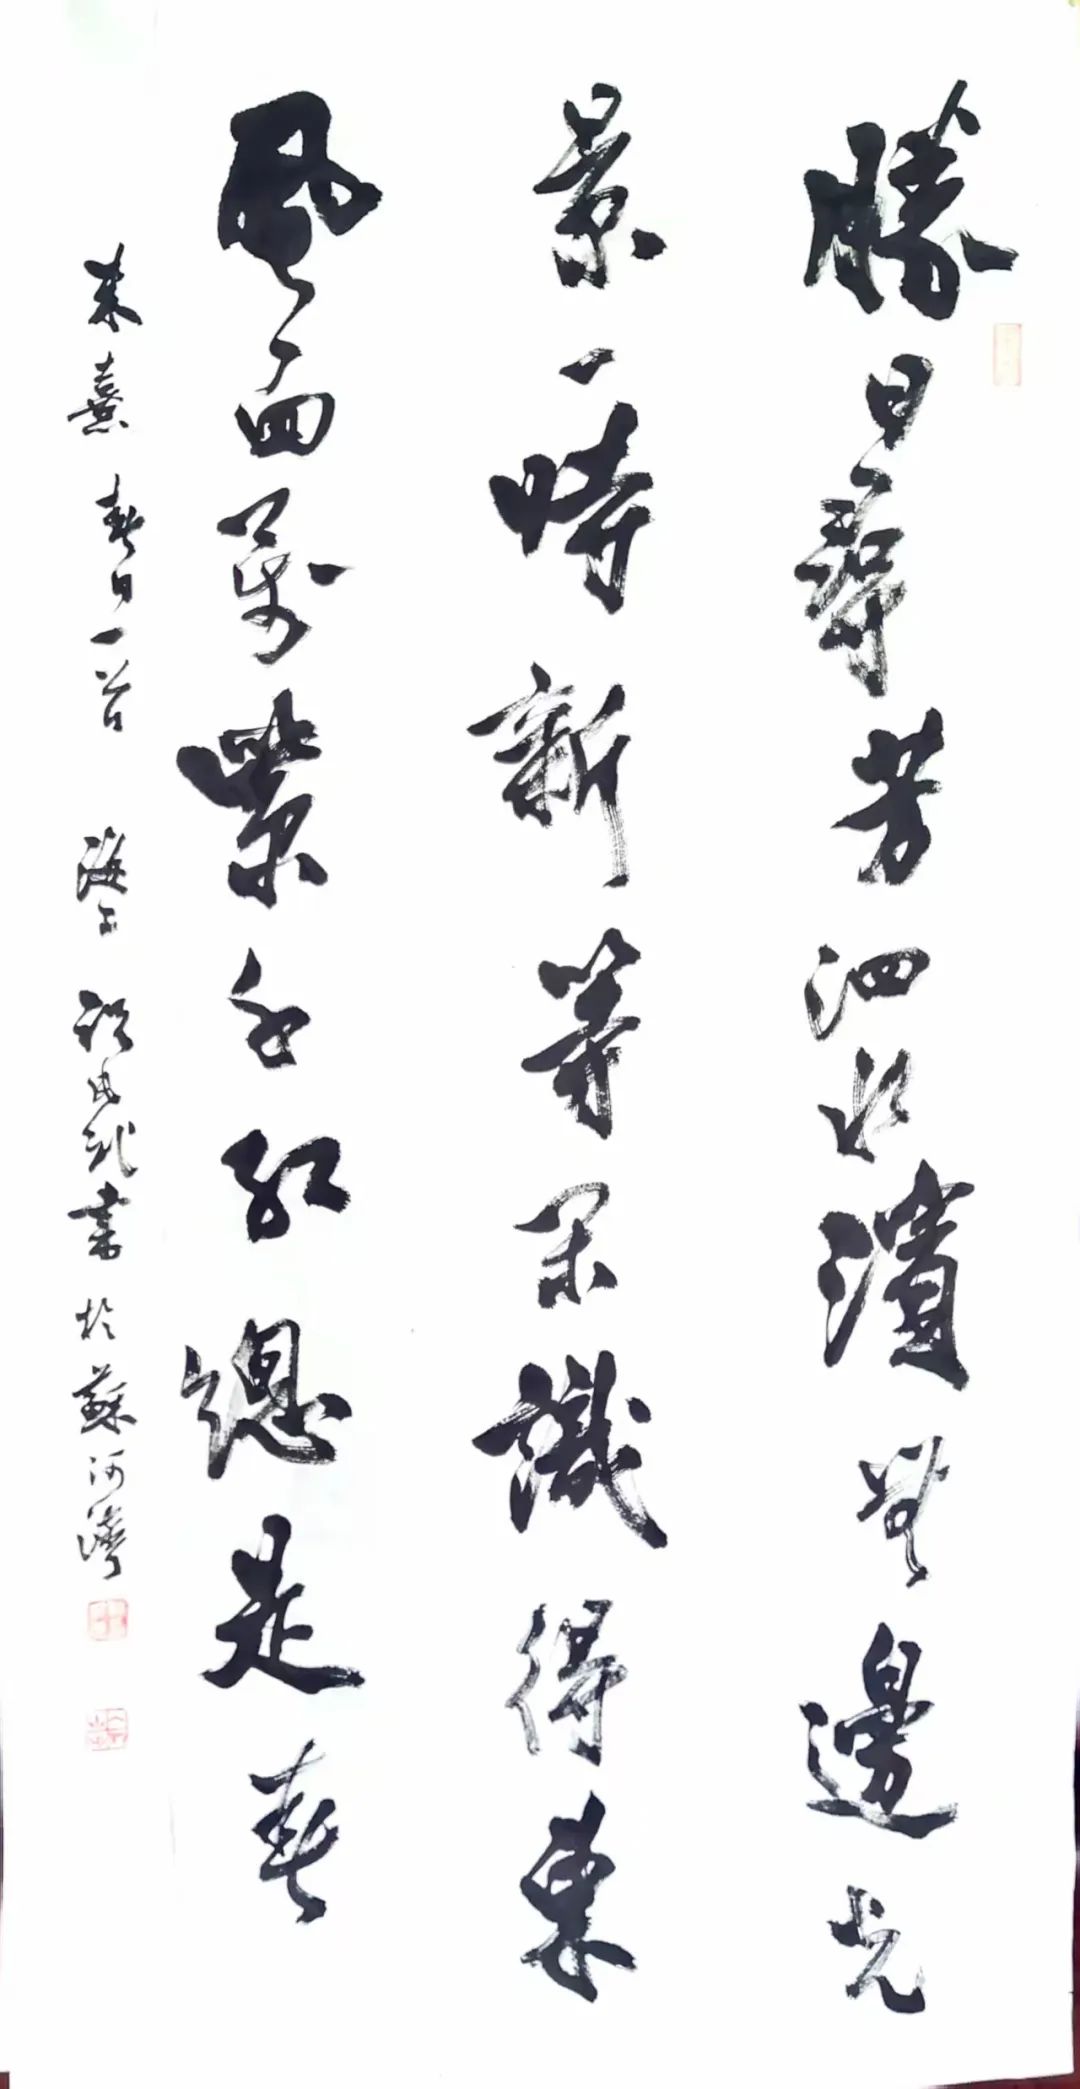 勝日尋芳泗水濱無邊光
景一時新等閑識得東
風面萬紫千紅總是春
朱熹春日一首 海上 書於蘇河灣